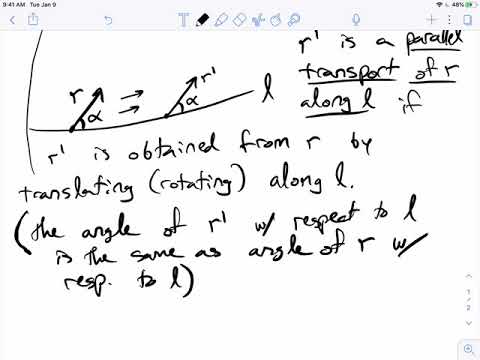 9:41 AM Tue Jan 9
48%
r' is a parallel
transport of r
along l if
r
α
r'
α
l
r' is obtained from r by
translating (rotating) along l.
(the angle of r' w/ respect to l
is the same as angle of r w/
resp. to l)
1
/
2